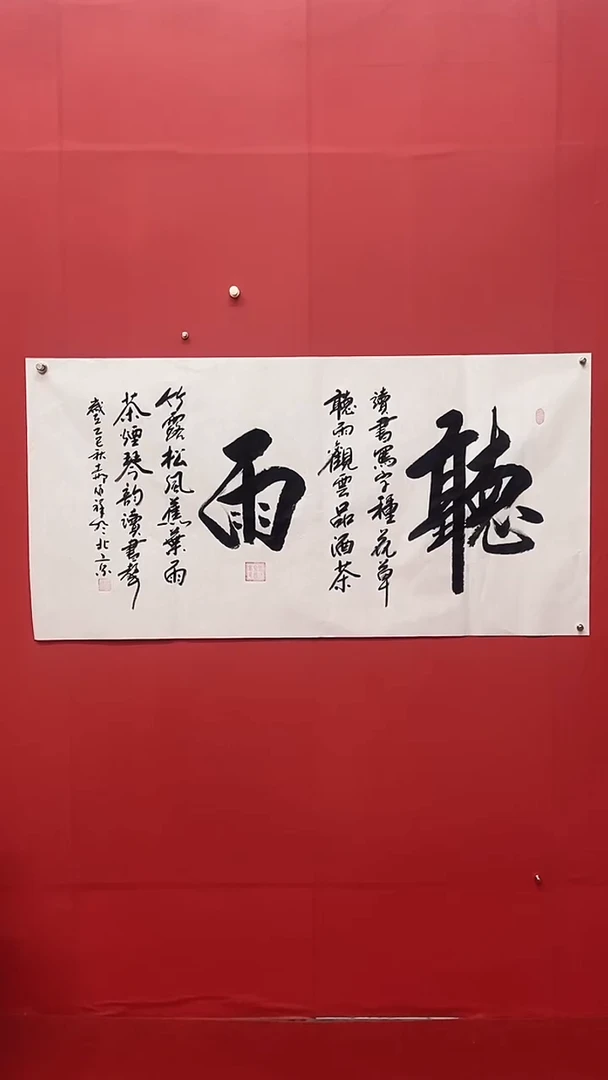 聽
讀書寫字種花草
聽雨觀雲品酒茶
雨
竹露松風蕉葉雨
茶煙琴韵讀書聲
歲在乙巳秋 於北京